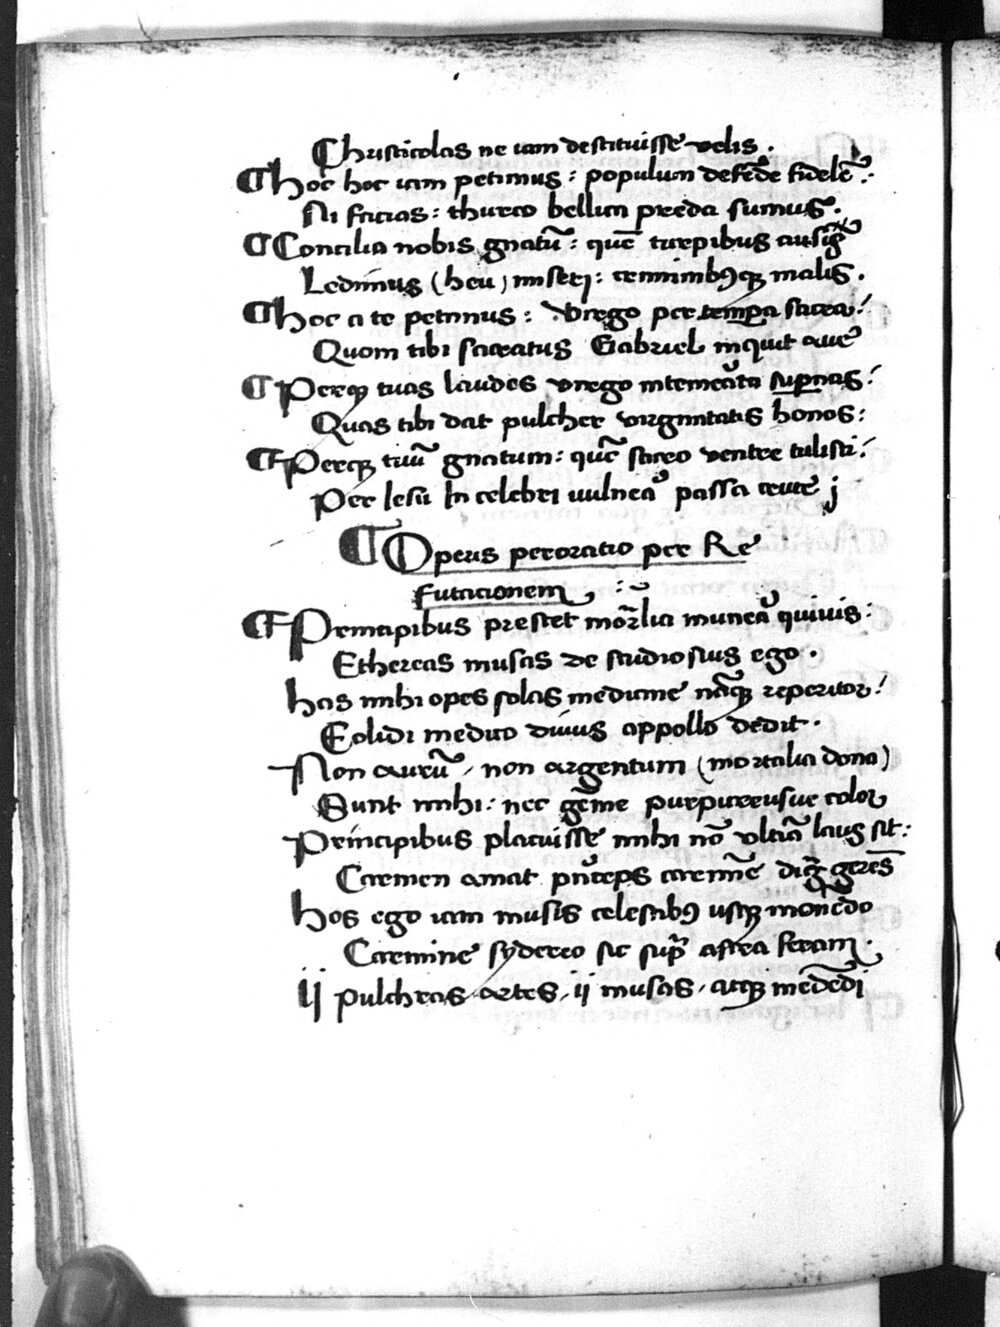 Christicolas ne iam destituisse velis .
¶ Hoc hoc iam petimus : populum defēde fidelē :
Ni facias : thurco bellica preda sumus .
¶ Concilia nobis gnatū : quē turpibus ausis
Ledimus ( heu ) miserj : criminibꝰqꝫ malis .
¶ Hoc a te petimus : Virgo per tempa sacra :
Quom tibi sacratus Gabriel inquit aue
¶ Perqꝫ tuas laudes virgo intemerāta supnas :
Quas tibi dat pulcher virginitatis honos :
¶ Perqꝫ tuū gnatum : quē sacro ventre tulisti :
Per Iesu in celebri uulnera passa cruce j
¶ Operis peroratio per Re
futacionem
¶ Principibus prestet mortalia munera quiuis :
Ethereas musas de studio suis ego .
has mihi opes solas medicine nāqꝫ repertor :
Eolidi medico diuus appollo dedit .
Non aurū , non argentum ( mortalia dona )
Sunt mihi : nec gēme purpureusue color
Principibus placuisse mihi nō vltīa laus sit :
Carmen amat prīceps carmīe digā gerēs
hos ego iam musis celestibꝰ usqꝫ
Carmine sydereo sic supra astra feram .
ij pulchras artes , ij musas , atqꝫ medēdi